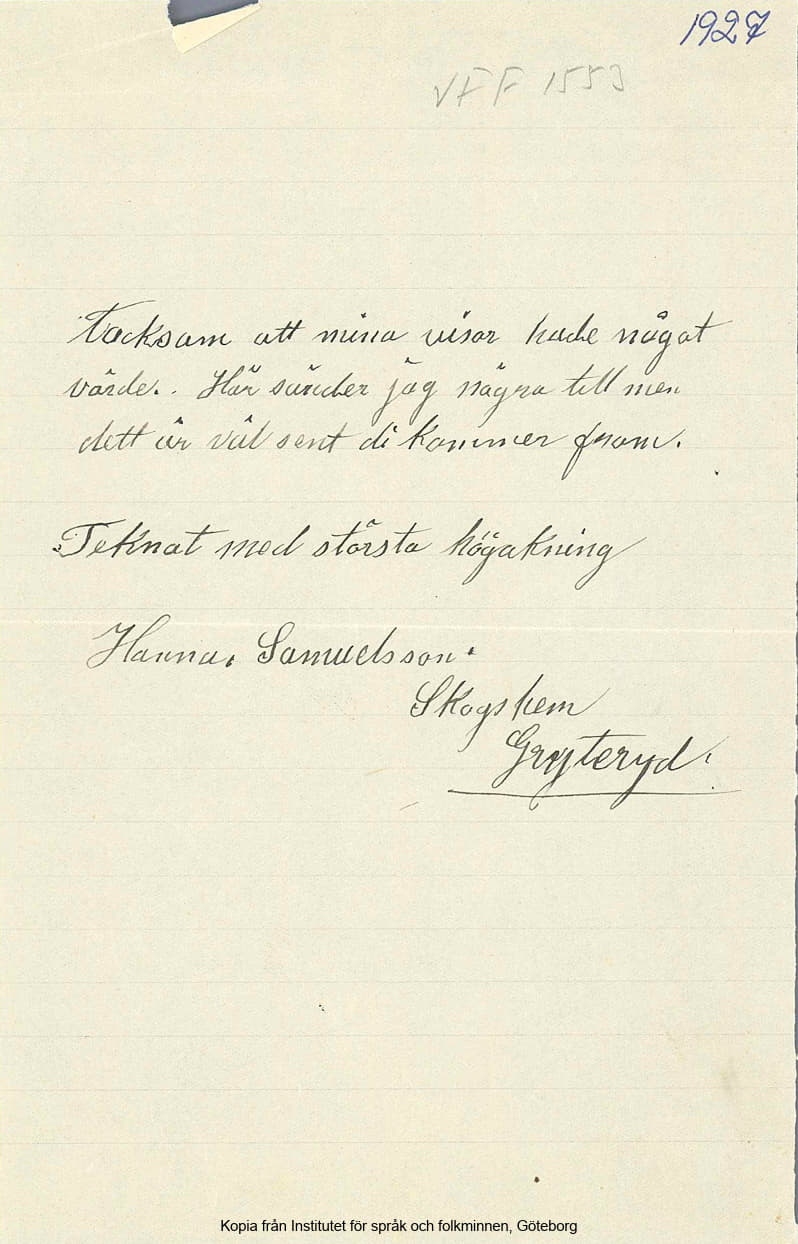 1927
VFF 1553
Tacksam att mina visor hade något
värde. Här sänder jag några till men
dett är väl sent di kommer fram.
Teknat med största högakning
Hanna. Samuelsson.
Skogshem
Gryteryd.
Kopia från Institutet för språk och folkminnen, Göteborg